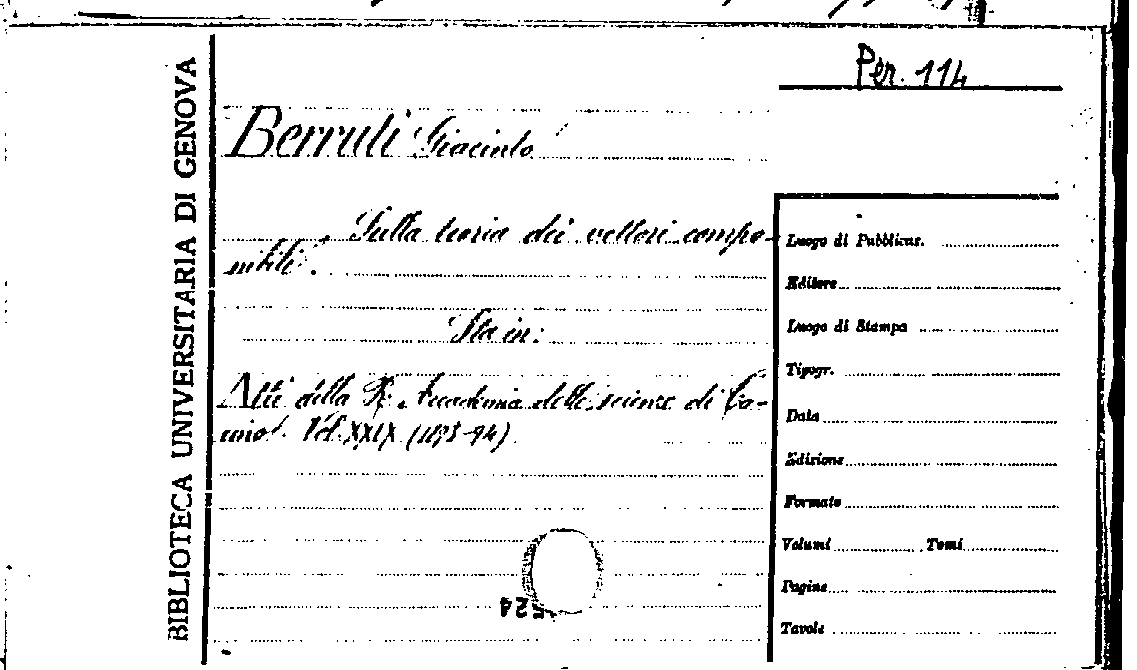 Per. 114
BIBLIOTECA UNIVERSITARIA DI GENOVA
Berruti Giacinto
Sulla teoria dei vettori compo-
nibili.
Sta in:
Atti della R. Accademia delle scienze di To-
rino. Vol. XXIX (1893-94)
Luogo di Pubblicaz.
Editore
Luogo di Stampa
Tipogr.
Data
Edizione
Formato
Volumi Tomi
Pagine
Tavole